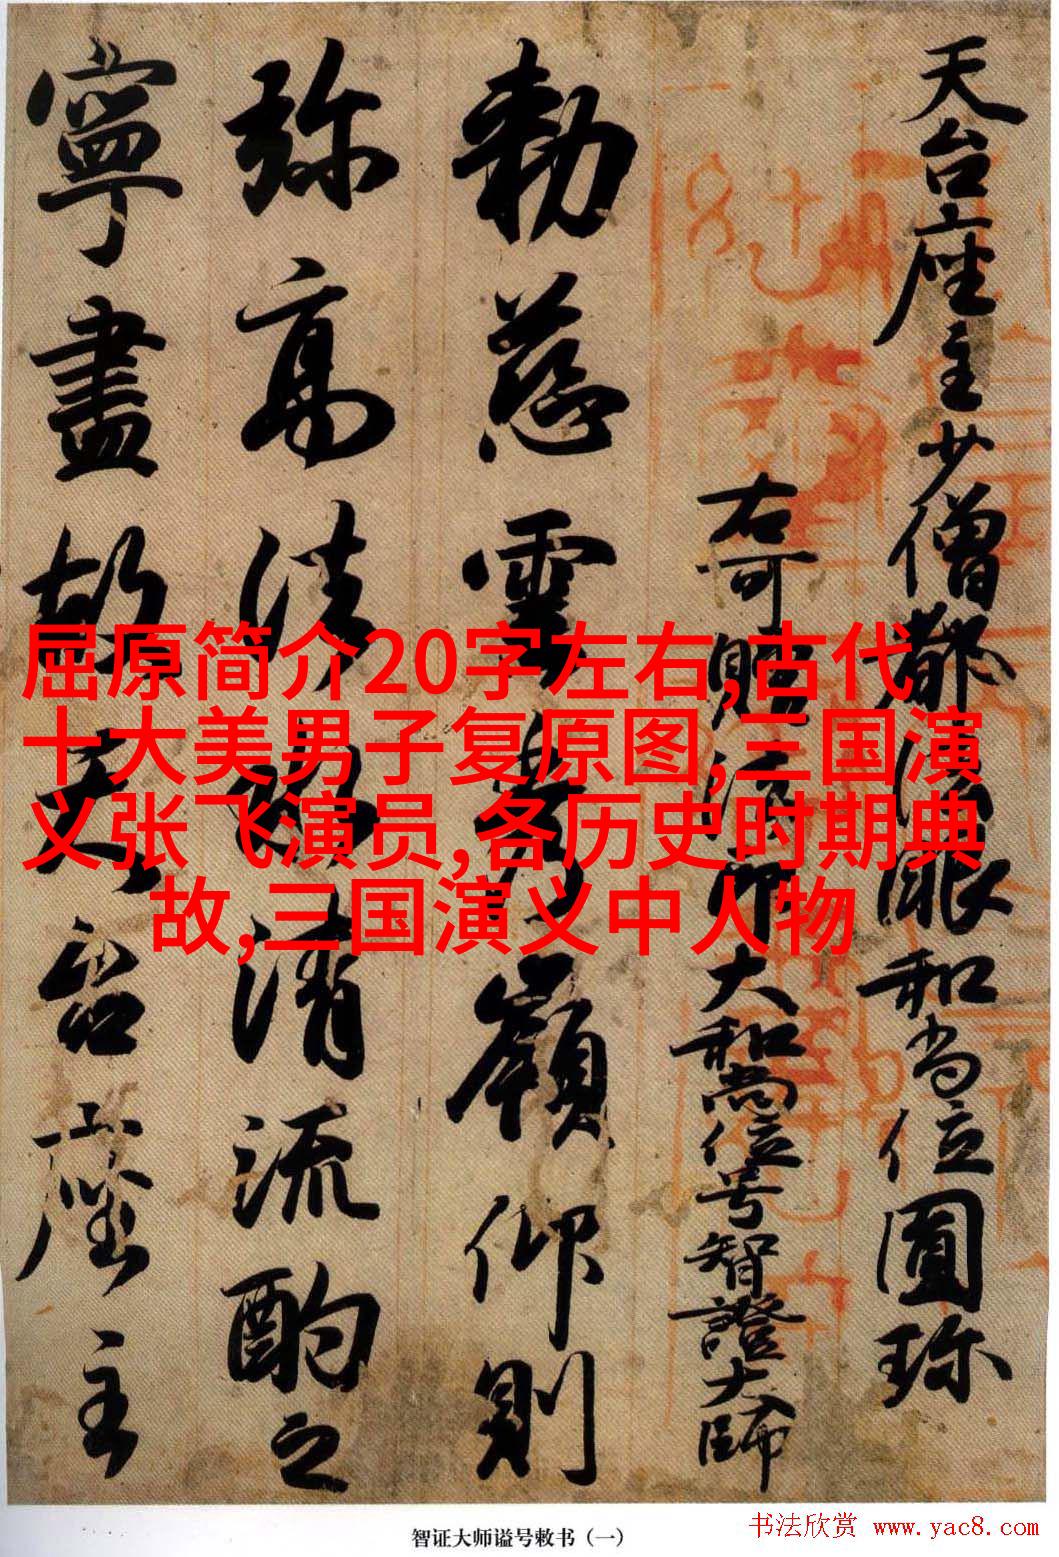 天台座主少僧都法眼和尚位圓珎
右可贈法印大和尚位号智證大師
勅慈雲秀嶺仰則
弥高法清流酌之
寧盡故天台座主
屈原简介20字左右,古代
十大美男子复原图,三国演
义张飞演员,各历史时期典
故,三国演义中人物
智证大师谥号敕书（一）
书法欣赏 www.yac8.com